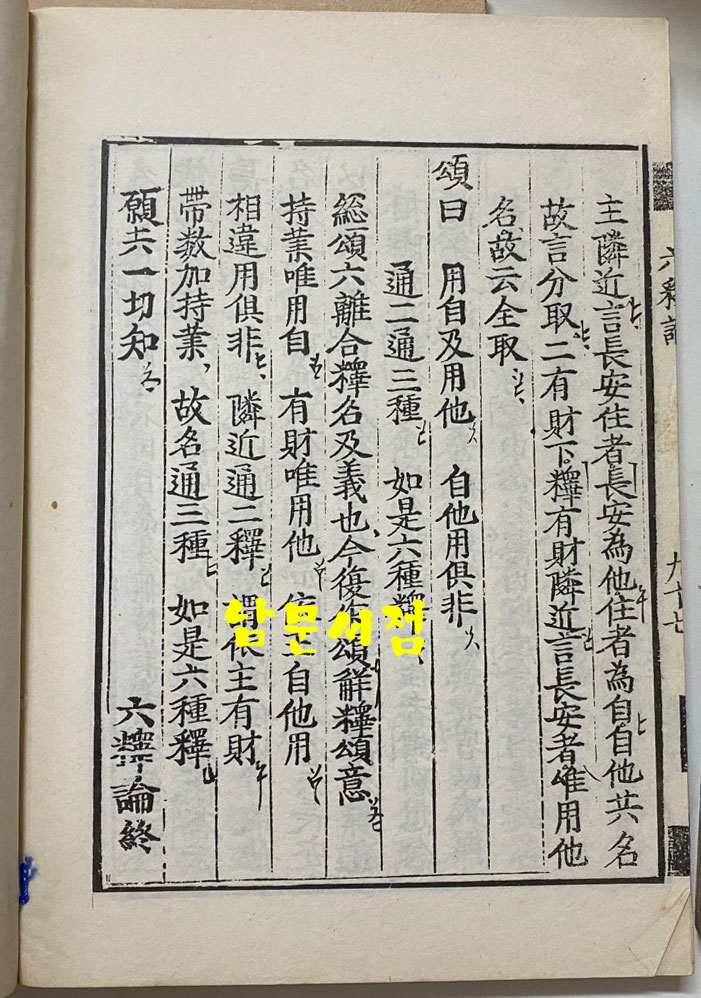 主隣近言長安住者長安為他住者為自自他共名
故言分取二有財下釋有財隣近言長安者唯用他
名故云全取
頌曰 用自及用他 自他用俱非
通二通三種 如是六種釋
緫頌六離合釋名及義也今復作頌觧釋頌意
持業唯用自 有財唯用他 依主自他用
相違用俱非 隣近通二釋 謂依主有財
帶数加持業 故名通三種 如是六種釋
願共一切知 六釋論終
남문서점